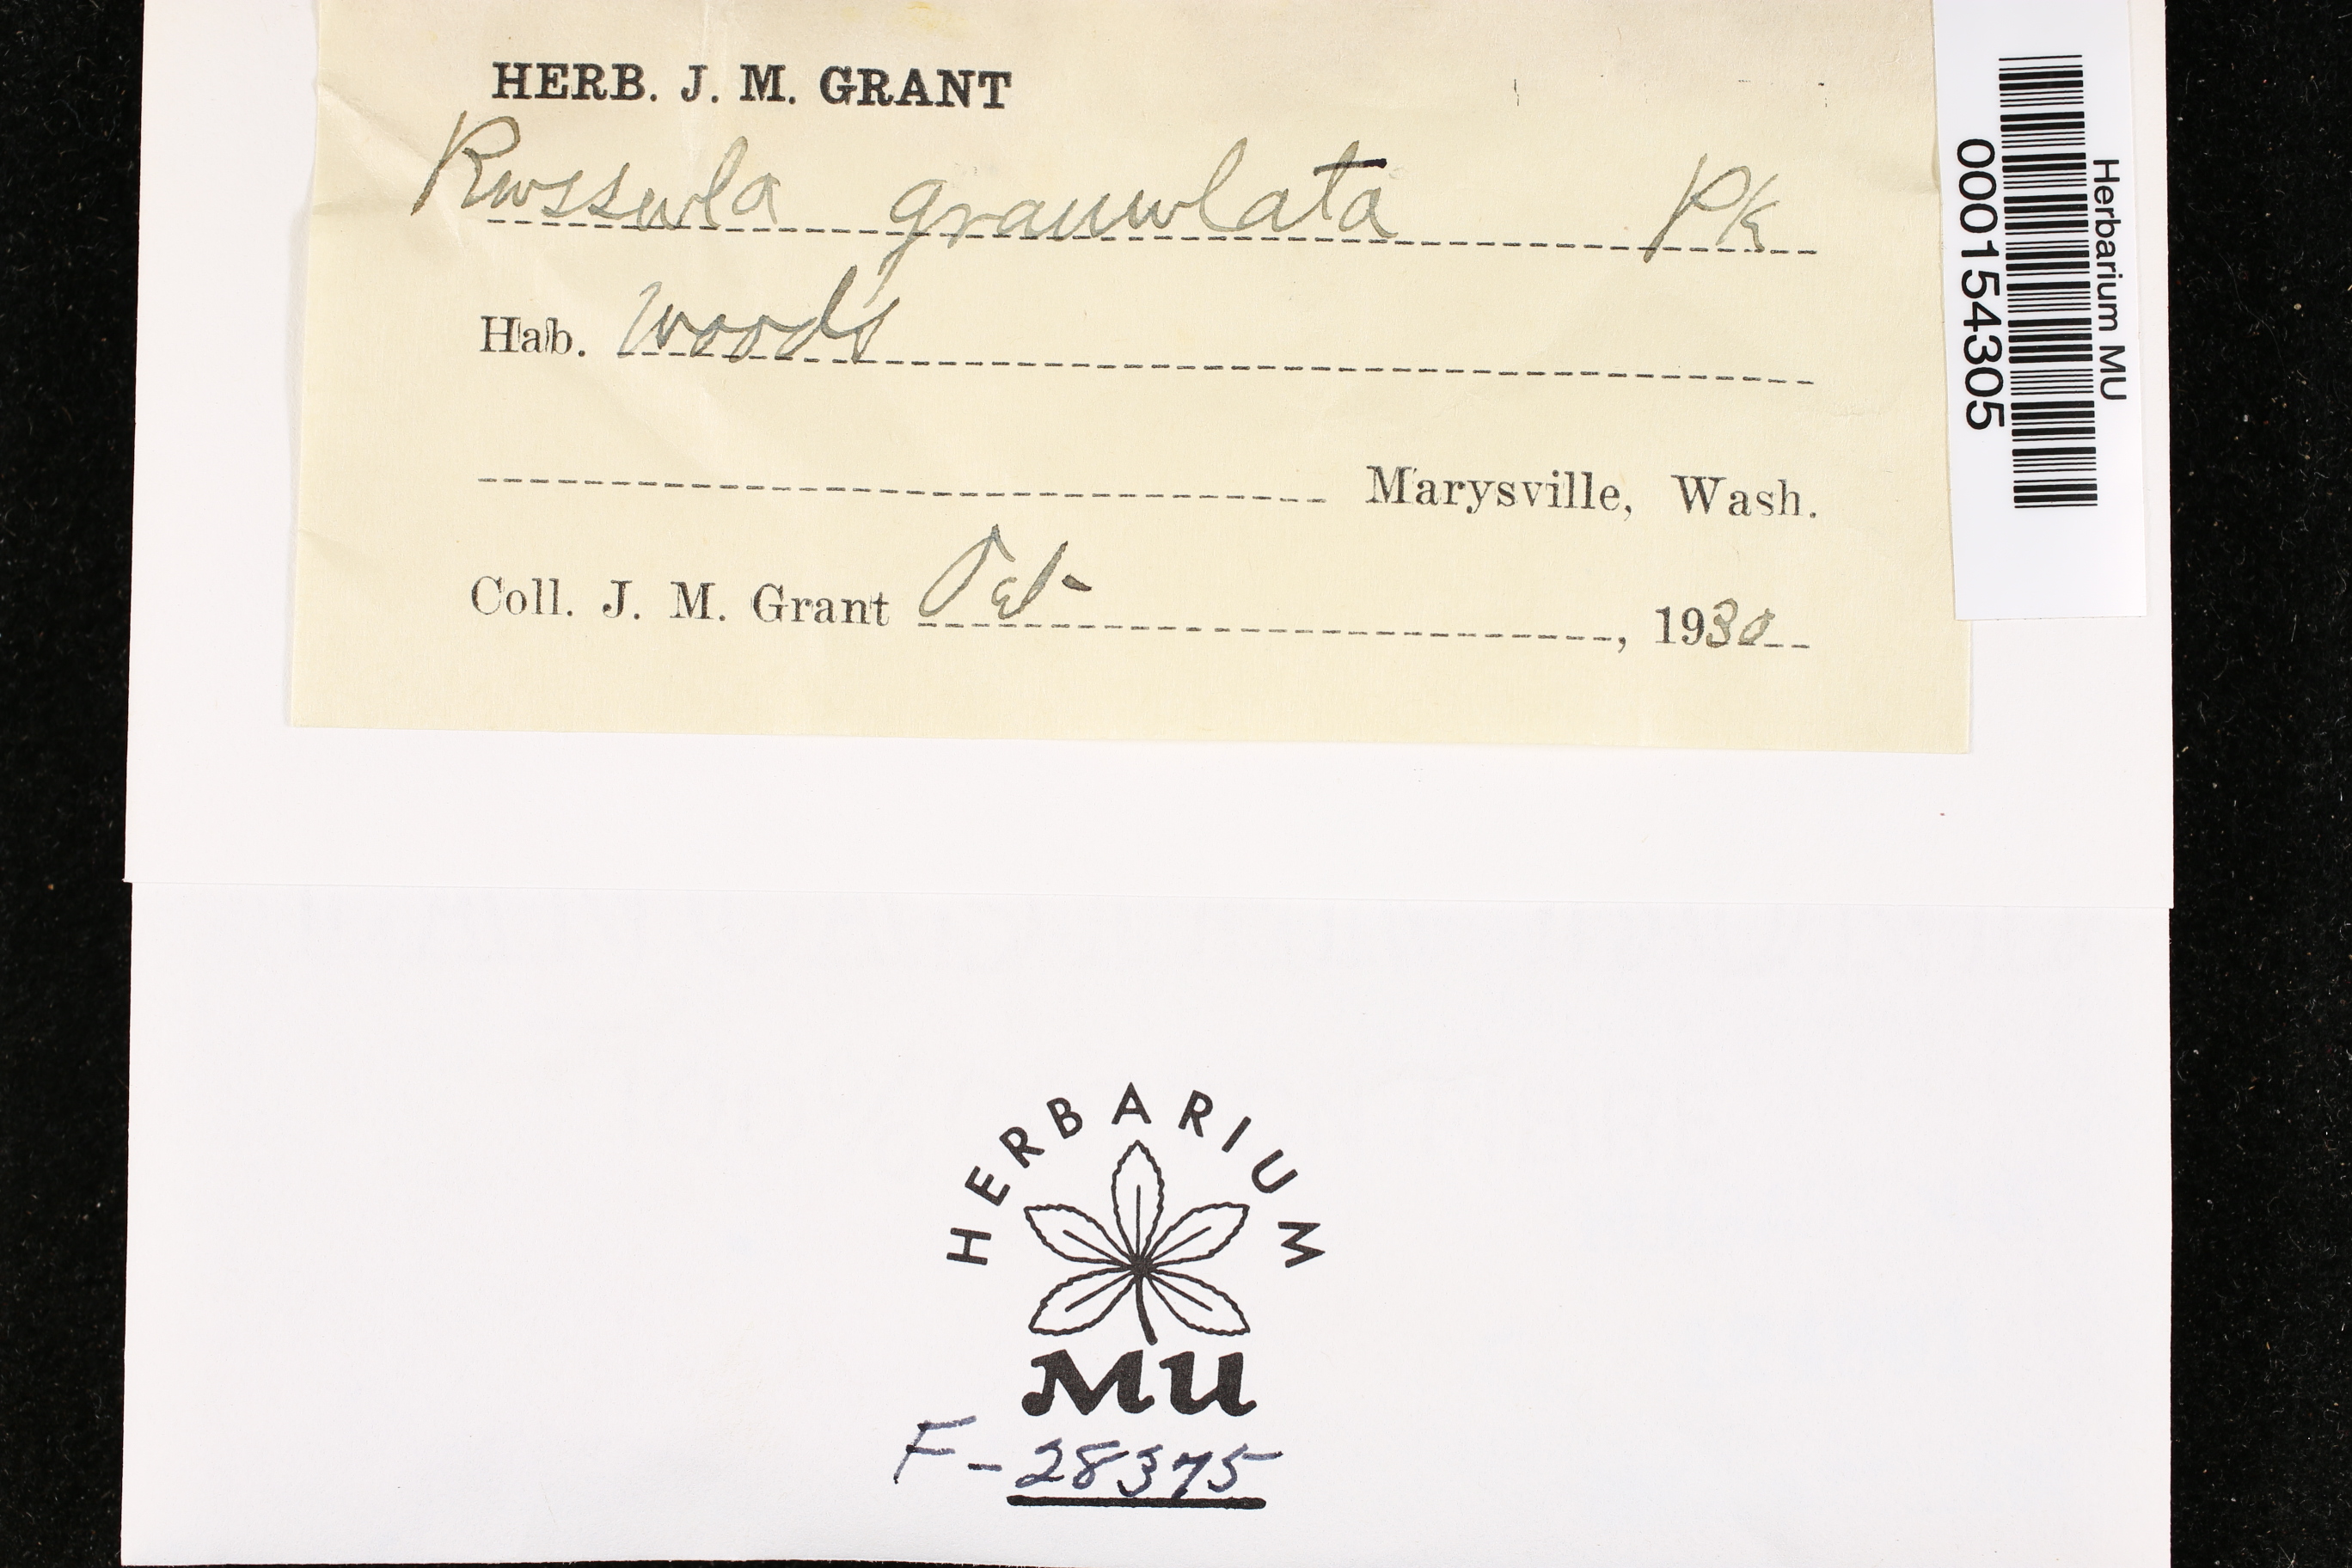 HERB. J. M. GRANT
Russula granulata Pk
Hab. Woods
Marysville, Wash.
Coll. J. M. Grant Oct, 1930
Herbarium MU
000154305
HERBARIUM
MU
F-28375